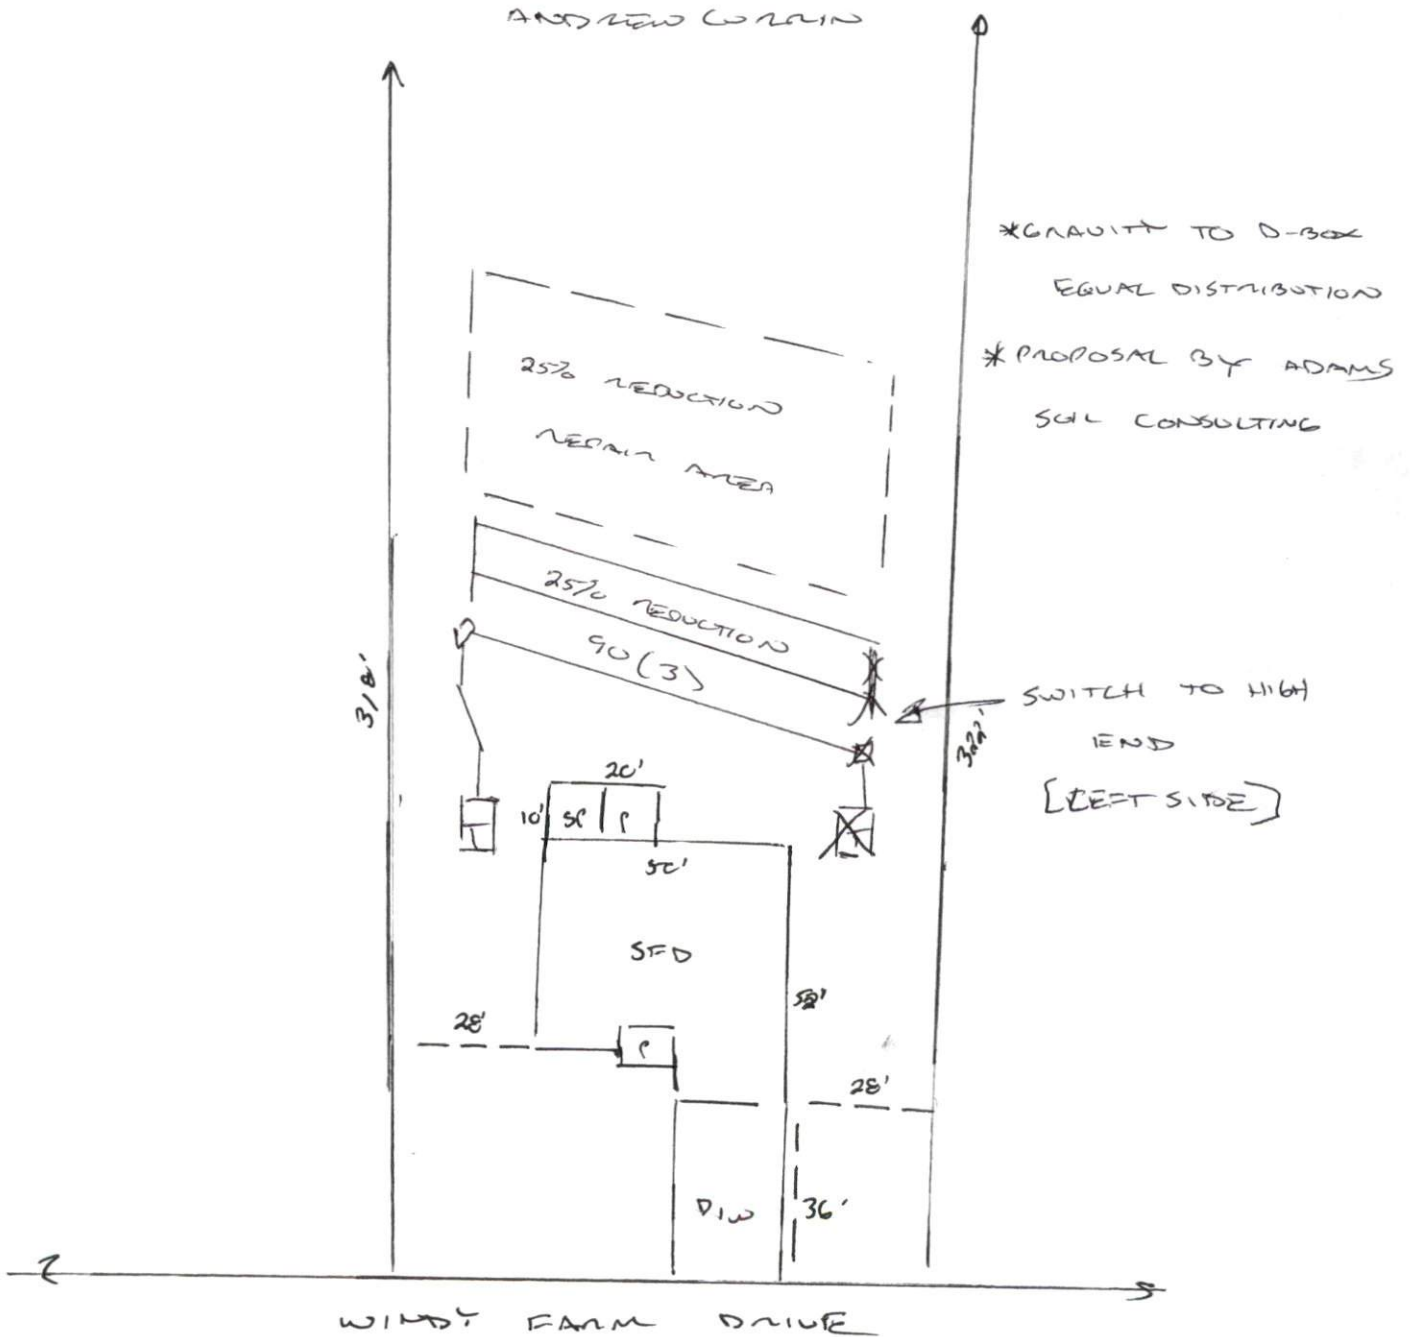 ANDREW CURRIN
*GRAVITY TO D-BOX
EQUAL DISTRIBUTION
*PROPOSAL BY ADAMS
SOIL CONSULTING
25% REDUCTION
REPAIR AREA
25% REDUCTION
90(3)
318'
322'
SWITCH TO HIGH
END
[LEFT SIDE]
20'
10'
SP
P
50'
SFD
28'
P
28'
D/W
36'
WINDY FARM DRIVE